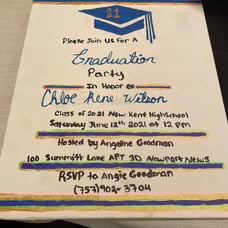 21
Please Join Us For A
Graduation
Party
In Honor of
Chloe Rene Wilson
Class of 2021 New Kent HighSchool
Saturday June 12th 2021 at 12 pm
Hosted by Angeline Goodman
100 Summitt Lane APT 3D Newport News
RSVP to Angie Goodman
(757)902-3704